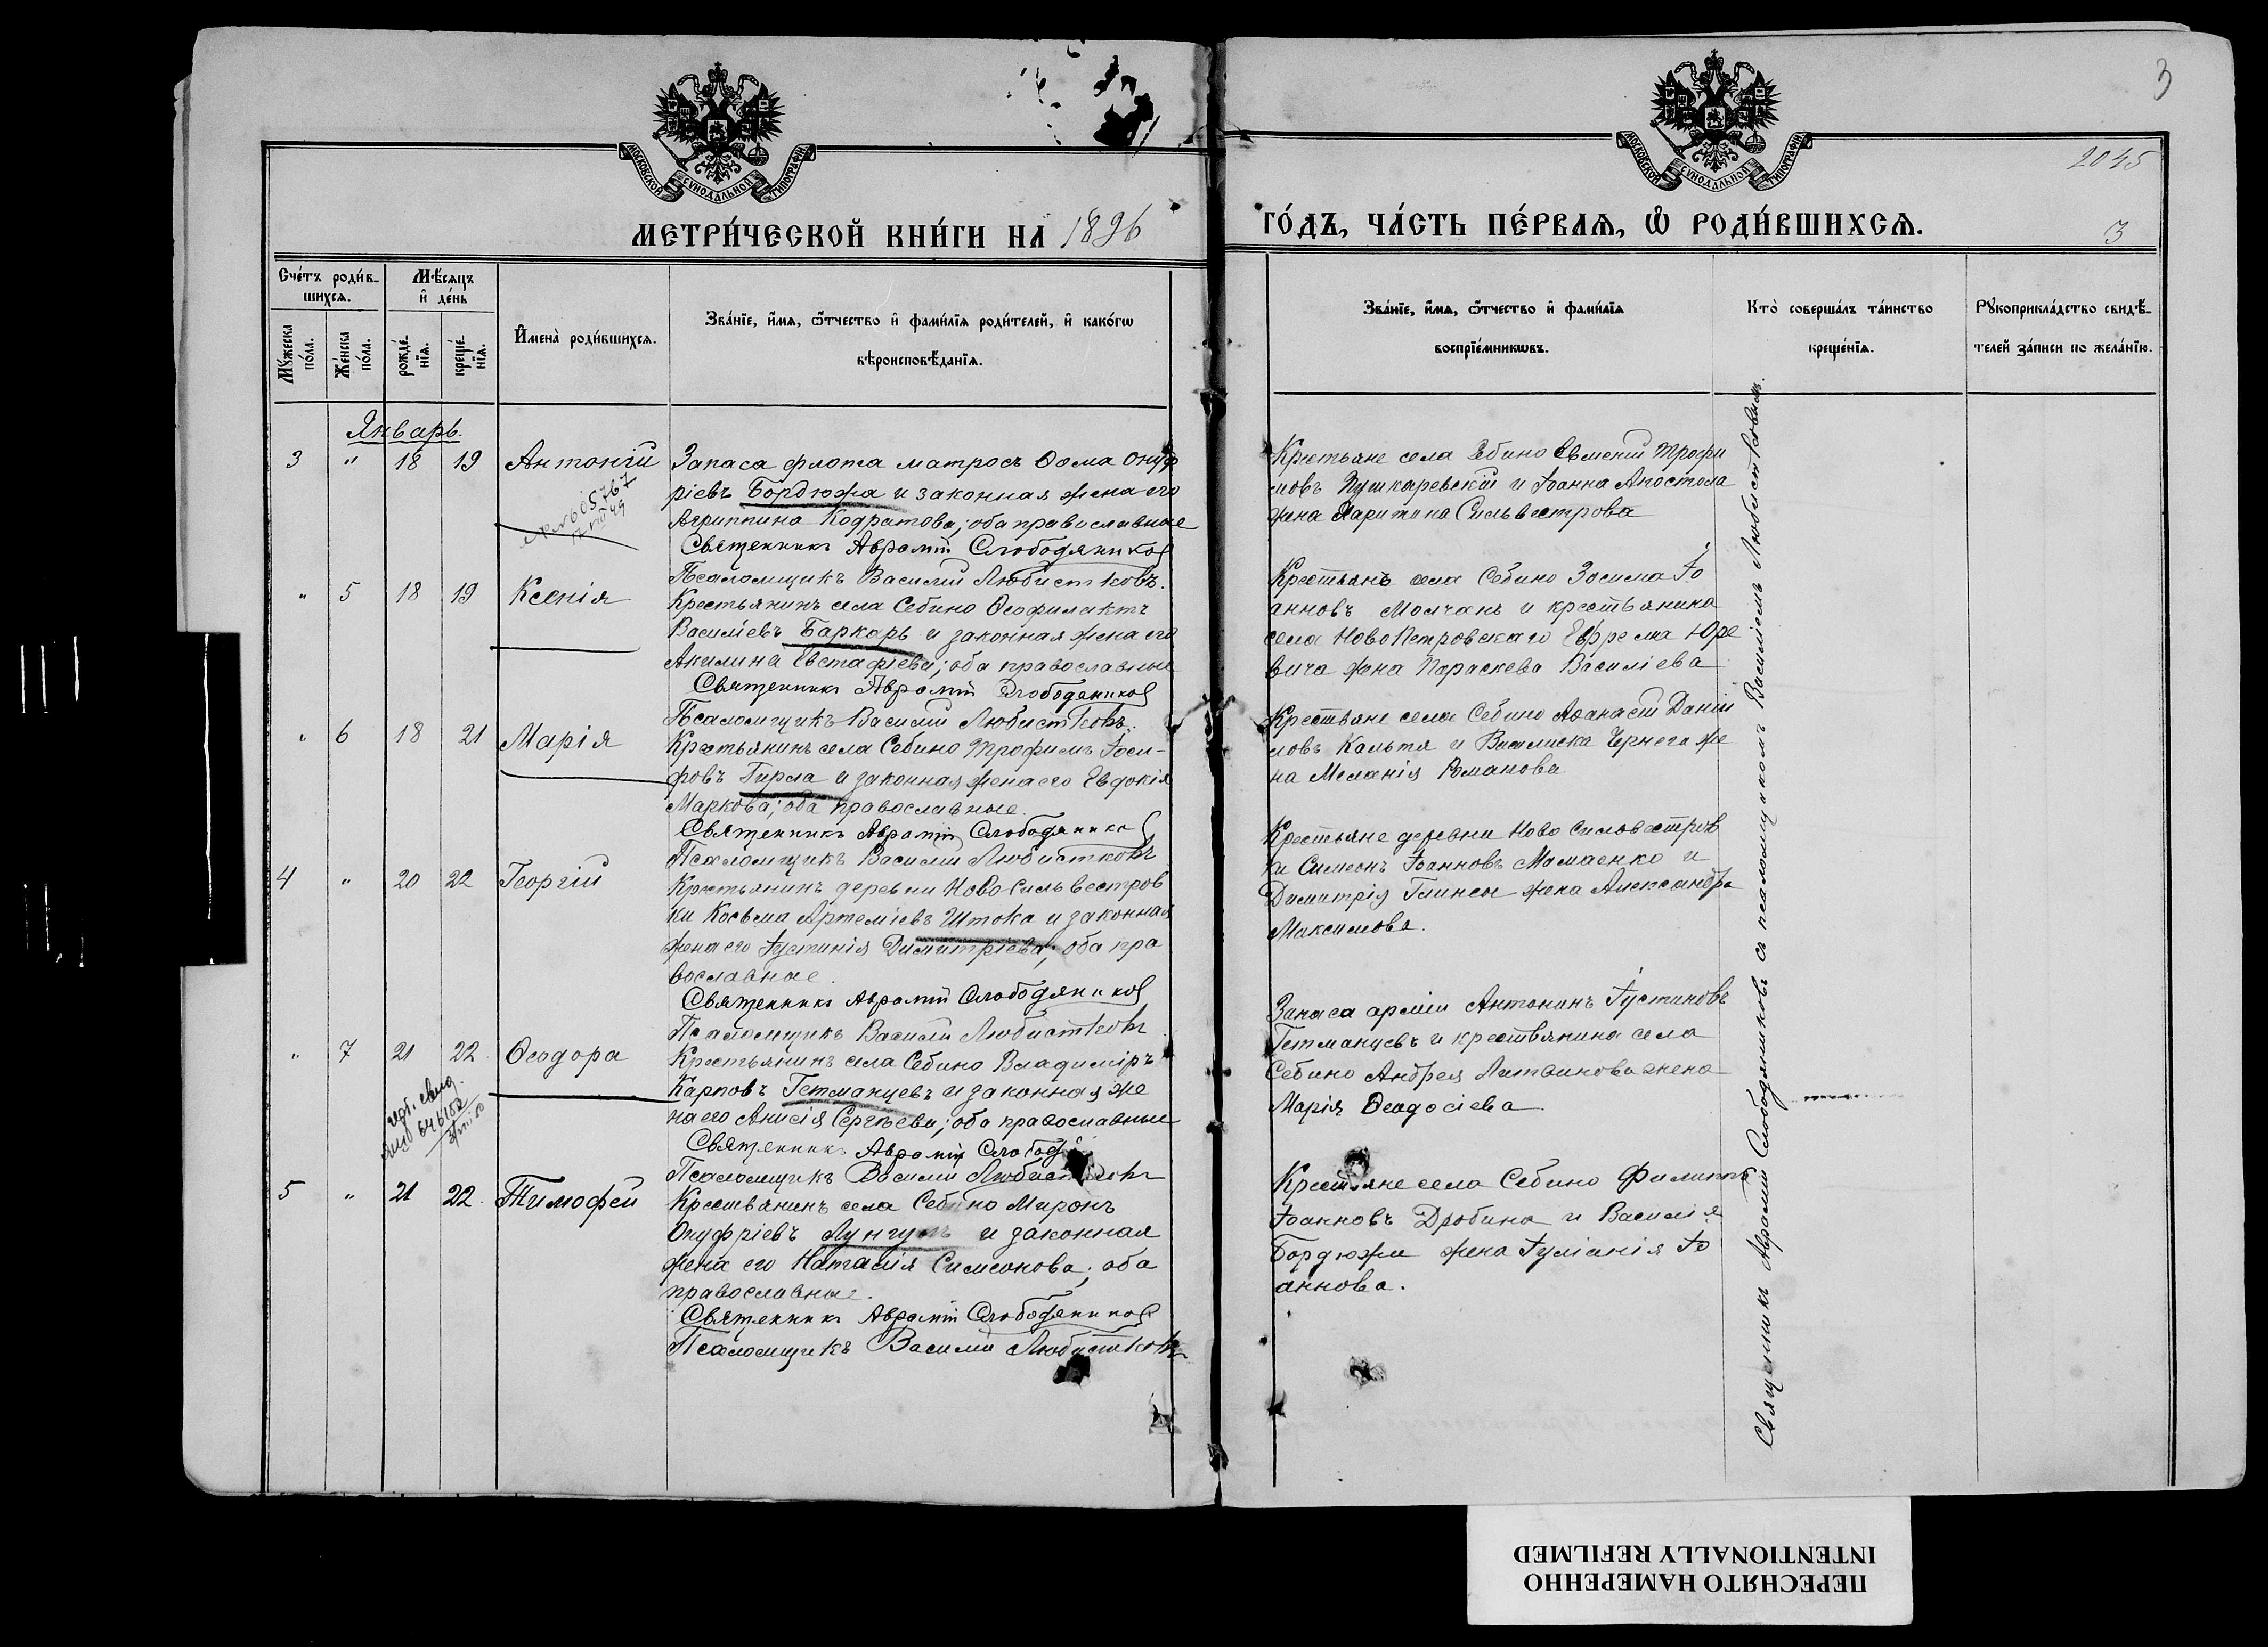 3
2045
3
МОСКОВСКОЙ СѴНОДАЛЬНОЙ ТИПОГРАФИИ
МОСКОВСКОЙ СѴНОДАЛЬНОЙ ТИПОГРАФИИ
МЕТРИ́ЧЕСКОЙ КНИ́ГИ НА 1896
ГО́ДЪ, ЧА́СТЬ ПЕ́РВАѦ, Ѽ РОДИ́ВШИХСѦ.
Сче́тъ роди́в-
шихсѧ.
Мꙋ́жеска
по́ла.
Же́нска
по́ла.
Мѣ́сѧцъ
и҆ де́нь
рожде́-
нїѧ.
креще́-
нїѧ.
И҆мена̀ роди́вшихсѧ.
Зва́нїе, и҆́мѧ, ѻ҆́тчество и҆ фами́лїѧ роди́телей, и҆ како́гѡ
вѣроисповѣ́данїѧ.
Зва́нїе, и҆́мѧ, ѻ҆́тчество и҆ фами́лїѧ
воспрїе́мникѡвъ.
Кто̀ соверша́лъ та́инство
креще́нїѧ.
Рꙋкоприкла́дство свидѣ́-
телей за́писи по жела́нїю.
Январь.
3 " 18 19 Антонiй
Запаса флота матросъ Ѳома Онуф
рiевъ Бордюжа и законная жена его
Агриппина Кодратова; оба православные
Священникъ Аврамiй Слободяников
Псаломщикъ Василiй Любистковъ.
Крестьяне села Себино Евменiй Трофи
мовъ Пушкаревскiй и Iоанна Апостола
жена Харитина Сильвестрова
605767
" 5 18 19 Ксенiя
Крестьянинъ села Себино Ѳеофилактъ
Василiевъ Баркарь и законная жена его
Акилина Евстафiева; оба православные
Священникъ Аврамiй Слободяников
Псаломщикъ Василiй Любистковъ.
Крестьянъ села Себино Зосима Iо
анновъ Молчанъ и крестьянина
села НовоПетровскаго Ефрема Юре
вича жена Параскева Василiева
" 6 18 21 Марiя
Крестьянинъ села Себино Трофимъ Iоси-
фовъ Гирла и законная жена его Евдокiя
Маркова; оба православные.
Священникъ Аврамiй Слободяников
Псаломщикъ Василiй Любистковъ
Крестьяне села Себино Аѳанасiй Данiи
ловъ Кальтя и Василиска Чернега же
на Меланiя Романова
4 " 20 22 Георгiй
Крестьянинъ деревни Ново Сильвестров
ки Косьма Артемiевъ Штока и законная
жена его Iустинiя Димитрiева; оба пра
вославные.
Священникъ Аврамiй Слободяников
Псаломщикъ Василiй Любистковъ
Крестьяне деревни Ново Сильвестров
ки Симеонъ Iоанновъ Мамаенко и
Димитрiя Глинсы жена Александра
Максимова.
" 7 21 22 Ѳеодора
Крестьянинъ села Себино Владимiръ
Карповъ Гетманцевъ и законная же
на его Анисiя Сергѣева; оба православные
Священникъ Аврамiй Слобод
Псаломщикъ Василiй Любистковъ
Запаса армiи Антонинъ Iустиновъ
Гетманцевъ и крестьянина села
Себино Андрея Литвинова жена
Марiя Ѳеодосiева
5 " 21 22. Тимофей
Крестьянинъ села Себино Миронъ
Онуфрiевъ Лунгулъ и законная
жена его Наталiя Симеонова; оба
православные.
Священникъ Аврамiй Слободяников
Псаломщикъ Василiй Любистковъ
Крестьяне села Себино Филиппъ
Iоанновъ Дробина и Василiя
Бордюжи жена Iулiанiя Iо
аннова.
Священникъ Аврамiй Слободяниковъ съ псаломщикомъ Василiемъ Любистковымъ.
ПЕРЕСНЯТО НАМЕРЕННО
INTENTIONALLY REFILMED